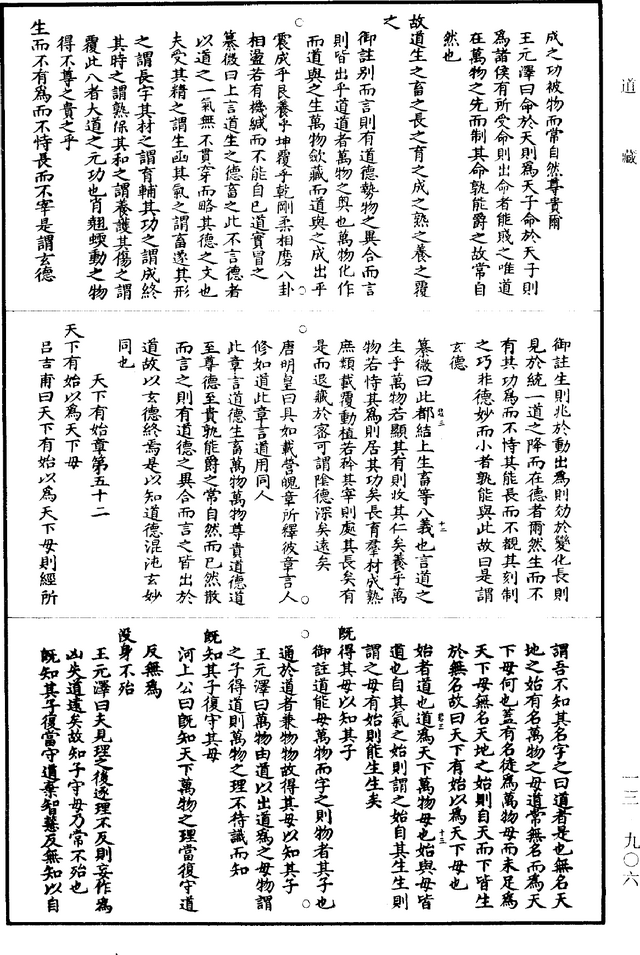 道藏
成之功被物而常自然尊貴爾
王元澤曰命於天則為天子命於天子則
為諸侯有所受命則出命者能賤之唯道
在萬物之先而制其命孰能爵之故常自
然也
故道生之畜之長之育之成之熟之養之覆
之
御註別而言則有道德勢物之異合而言
則皆出乎道道者萬物之奧也萬物化作
而道與之生萬物歛藏而道與之成出乎
震成乎艮養乎坤覆乎乾剛柔相磨八卦
相盪若有機緘而不能自已道實冒之
纂微曰上言道生之德畜之此不言德者
以道之一氣無不貫穿而略其德之文也
夫受其精之謂生函其氣之謂畜遂其形
之謂長字其材之謂育輔其功之謂成終
其時之謂熟保其和之謂養護其傷之謂
覆此八者大道之元功也肖翹蝡動之物
得不尊之貴之乎
生而不有為而不恃長而不宰是謂玄德
御註生則兆於動出為則効於變化長則
見於統一道之降而在德者爾然生而不
有其功為而不恃其能長而不覩其刻制
之巧非德妙而小者孰能與此故曰是謂
玄德
纂微曰此都結上生畜等八義也言道之
生乎萬物若顯其有則收其仁矣養乎萬
物若恃其為則居其功矣長育羣材成熟
庶類載覆動植若矜其宰則處其長矣有
是而退藏於密可謂陰德深矣遠矣
唐明皇曰具如載營魄章所釋彼章言人
修如道此章言道用同人
此章言道德生畜萬物萬物尊貴道德道
至尊德至貴孰能爵之常自然而已然散
而言之則有道德之異合而言之皆出於
道故以玄德終焉是以知道德混沌玄妙
同也
天下有始章第五十二
天下有始以為天下母
呂吉甫曰天下有始以為天下母則經所
謂吾不知其名字之曰道者是也無名天
地之始有名萬物之母道常無名而為天
下母何也蓋有名徒為萬物母而未足為
天下母無名天地之始則自天而下皆生
於無名故曰天下有始以為天下母也
始者道也道為天下萬物母也始與母皆
道也自其氣之始則謂之始自其生生則
謂之母有始則能生生矣
既得其母以知其子
御註道能母萬物而字之則物者其子也
通於道者兼物物故得其母以知其子
王元澤曰萬物由道以出道為之母物謂
之子得道則萬物之理不待識而知
既知其子復守其母
河上公曰既知天下萬物之理當復守道
反無為
沒身不殆
王元澤曰夫見理之後逐理不反則妄作為
凶失道遠矣故知子守母乃常不殆也
既知其子復當守道棄智慧反無知以自
一三 九〇六